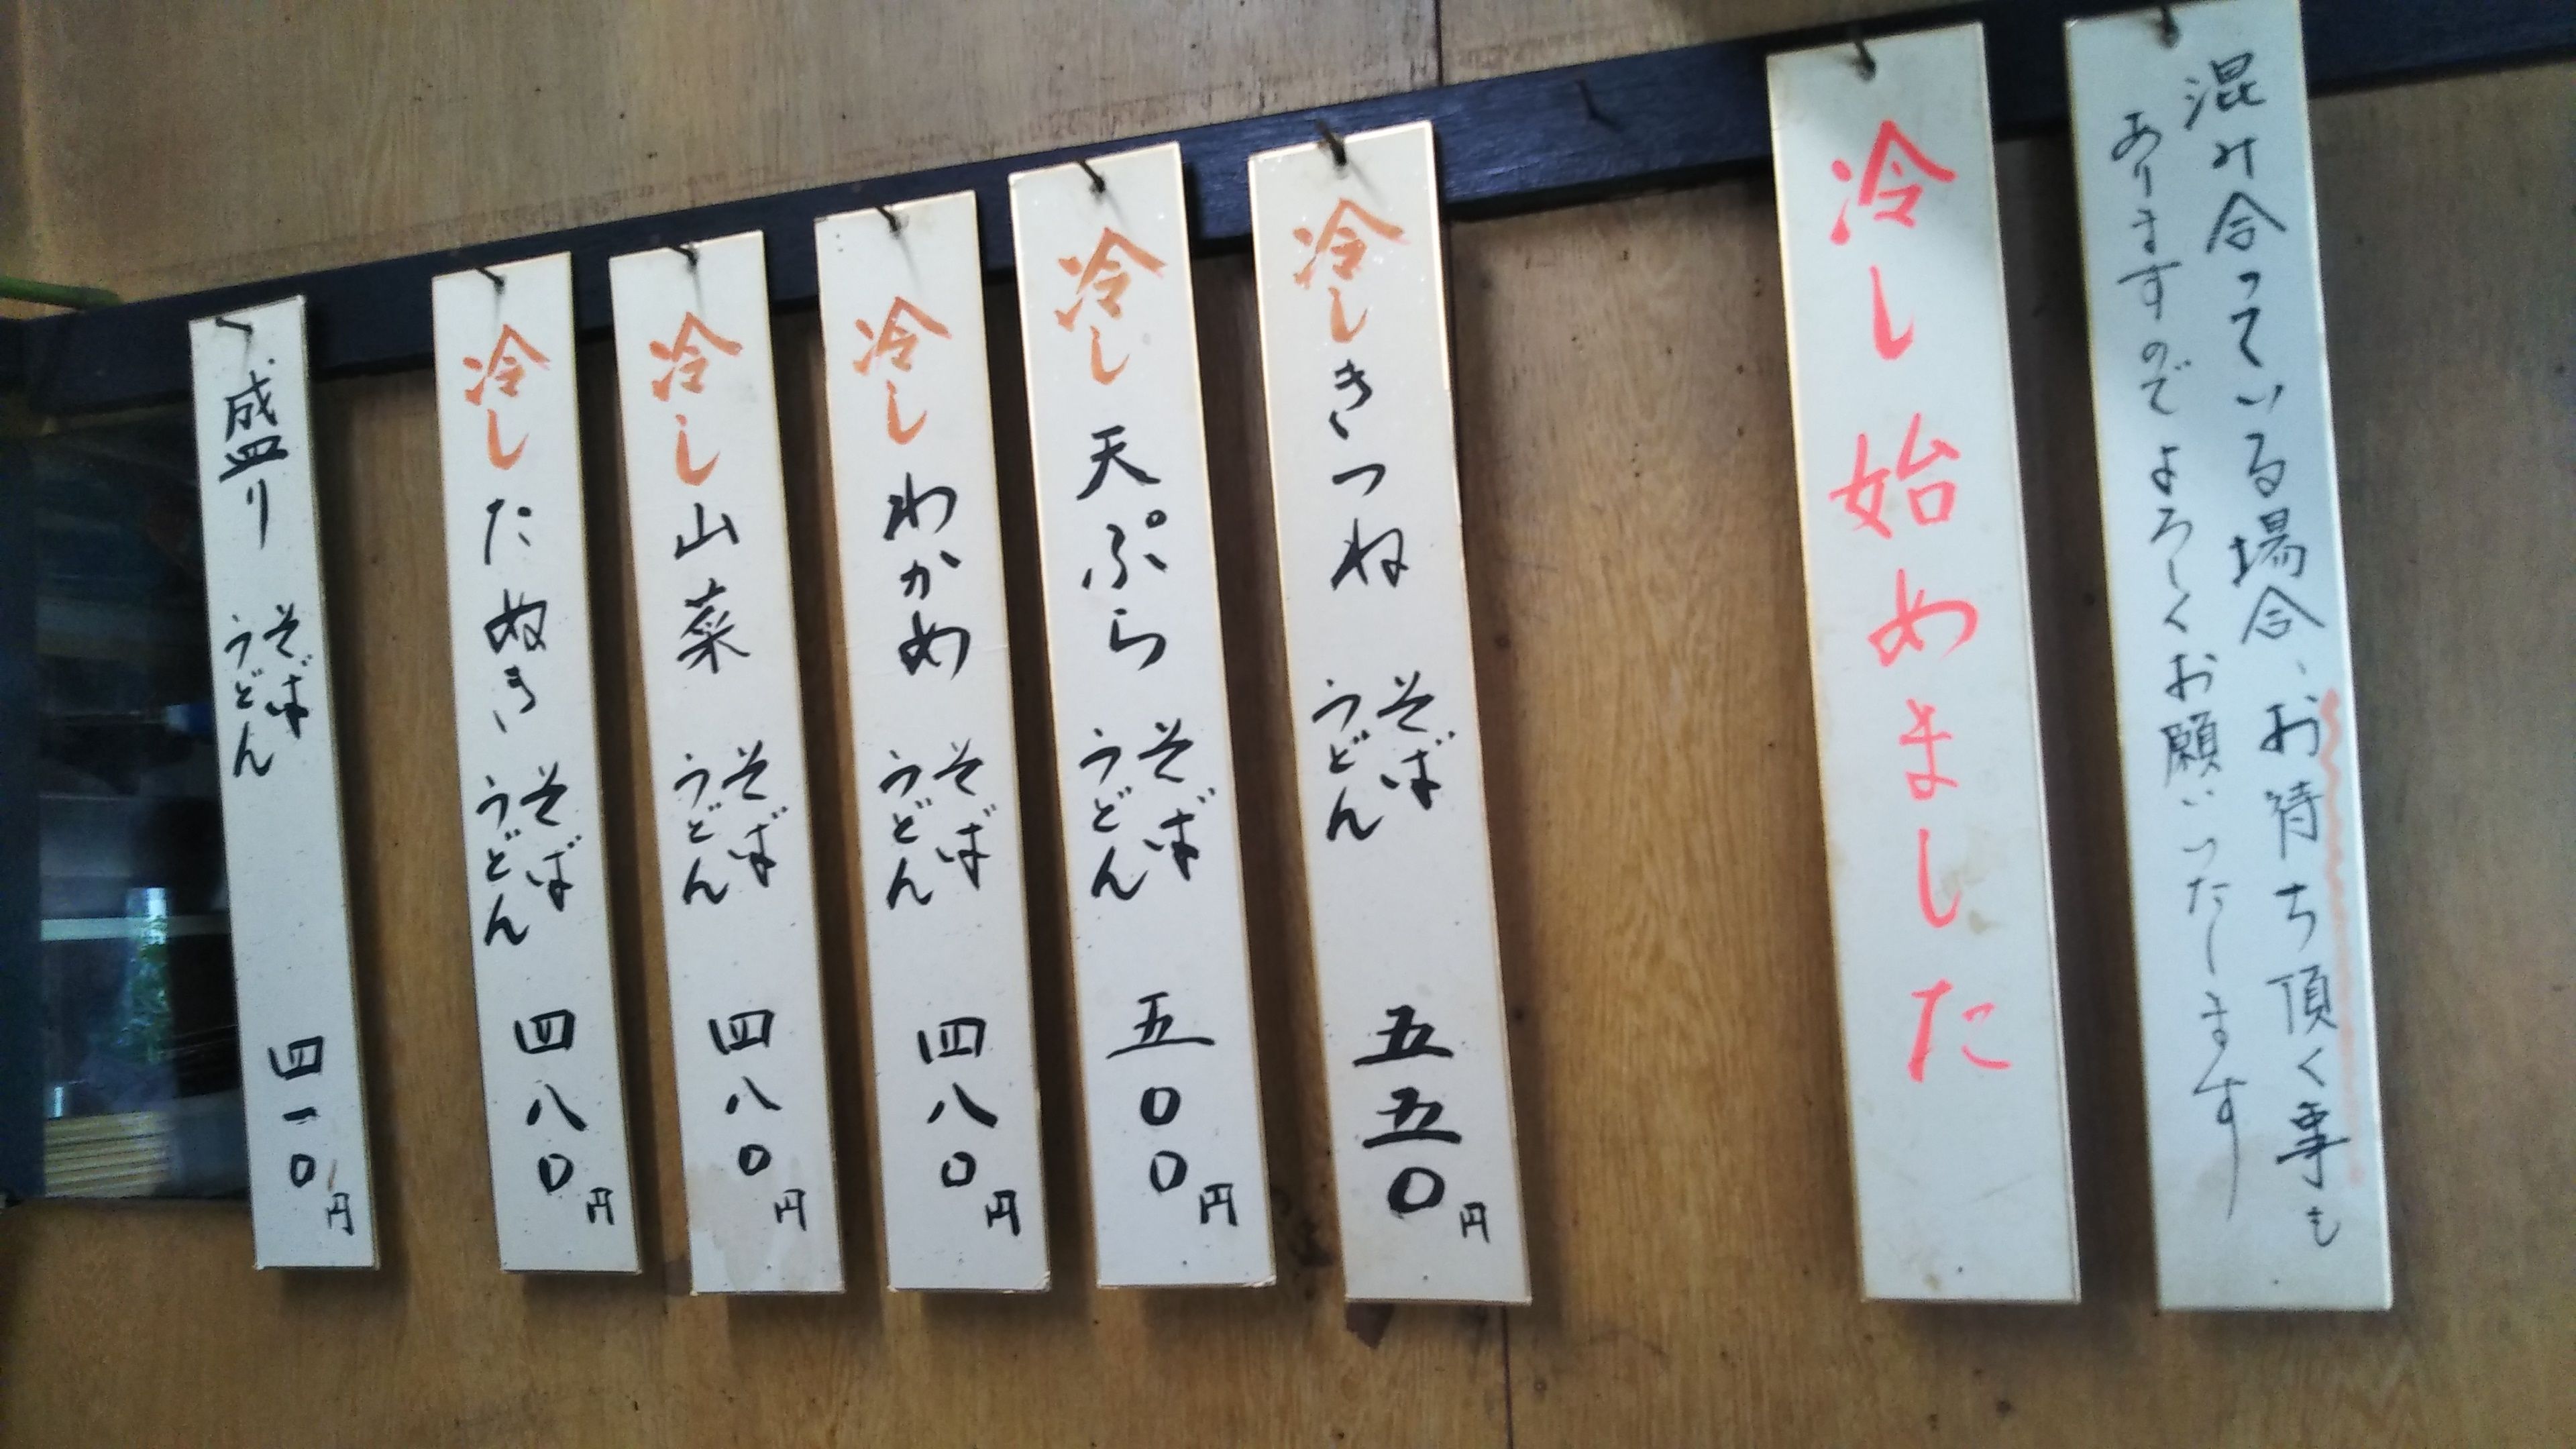 混み合っている場合、お待ち頂く事も
ありますのでよろしくお願いいたします
冷し始めました
冷しきつね そば うどん 五五〇円
冷し天ぷら そば うどん 五〇〇円
冷しわかめ そば うどん 四八〇円
冷し山菜 そば うどん 四八〇円
冷したぬき そば うどん 四八〇円
盛り そば うどん 四一〇円